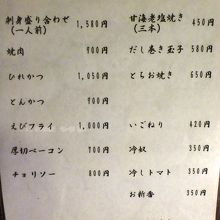 刺身盛り合わせ
(一人前) 1,580円
焼肉 900円
ひれかつ 1,050円
とんかつ 900円
えびフライ 1,000円
厚切ベーコン 700円
チョリソー 800円
甘海老塩焼き
(三本) 450円
だし巻き玉子 580円
とちお焼き 650円
いごねり 420円
冷奴 350円
冷しトマト 350円
お新香 350円